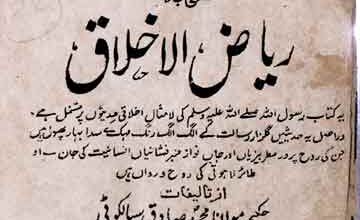 ریاض الاخلاق
یہ کتاب رسول اللہ صلے اللہ علیہ وسلم کی لامثال اخلاقی حدیثوں پر مشتمل ہے،
دراصل یہ حدیثیں گلزار رسالت کے الگ الگ رنگ و مہک کے سدا بہار پھول ہیں
جن کی روح پرور عطر بیزیاں اور جاں نواز عنبر فشانیاں انسانیت کی جان۔ او
طائر لاہوتی کی روح و رواں ہیں
از تالیفات
حکیم مولانا محمد صادق سیالکوٹی